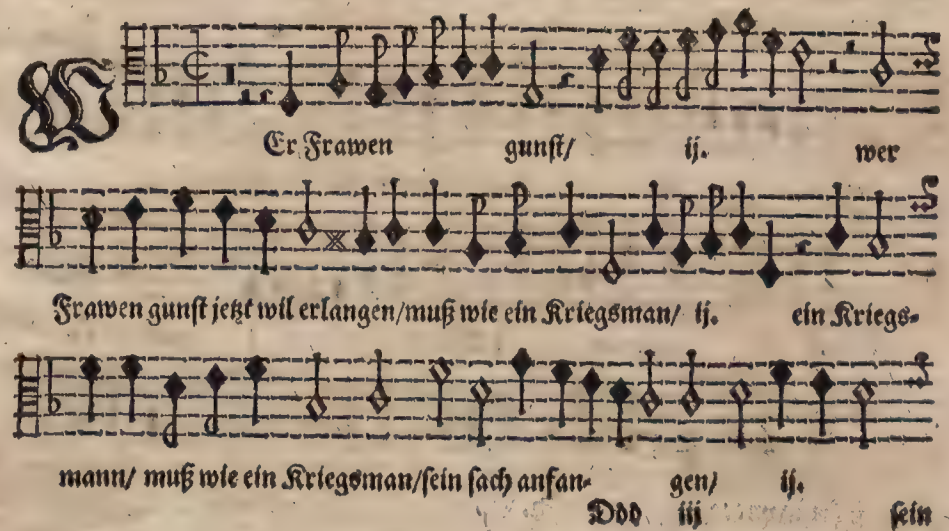 WEr Frawen gunst/ ij. wer
Frawen gunst jetzt wil erlangen/muß wie ein Kriegsman/ ij. ein Kriegs-
mann/ muß wie ein Kriegsman/sein sach anfan- gen/ ij.
Ddd iij sein